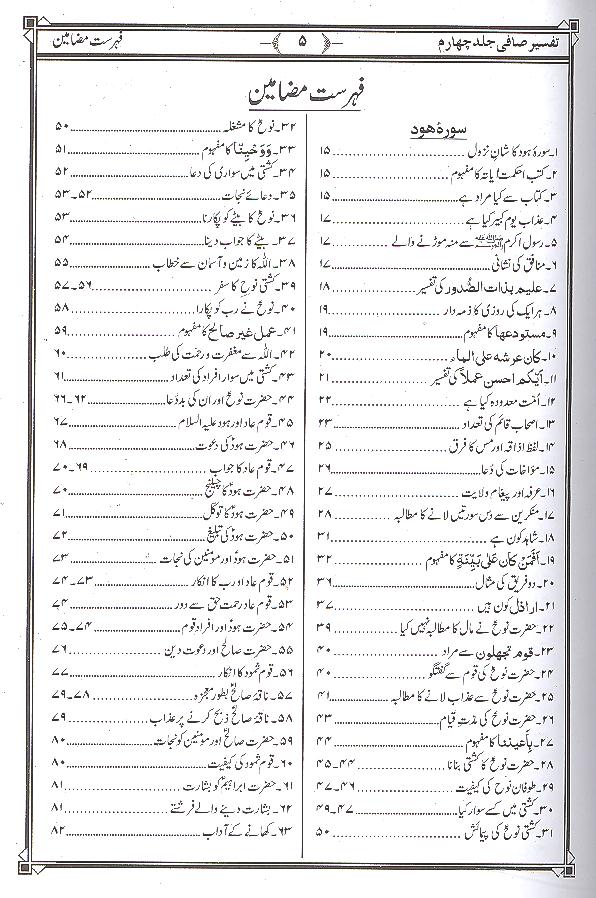 تفسیر صافی جلد چهارم
۵
فہرست مضامین
فہرست مضامین
سورۂ ھود
۱۔ سورۂ ہود کا شانِ نزول ۱۵
۲۔ کتب احکمت اٰیاتہ کا مفہوم ۱۵
۳۔ کتاب سے کیا مراد ہے ۱۵
۴۔ عذاب یوم کبیر کیا ہے ۱۷
۵۔ رسول اکرم ﷺ سے منہ موڑنے والے ۱۷
۶۔ منافق کی نشانی ۱۷
۷۔ علیم بذات الصُّدور کی تفسیر ۱۸
۸۔ ہر ایک کی روزی کا ذمہ دار ۱۹
۹۔ مستودعھا کا مفہوم ۱۹
۱۰۔ کان عرشہ علی الماء ۲۰
۱۱۔ اَیُّکم احسن عملاً کی تفسیر ۲۱
۱۲۔ اُمّت معدودہ کیا ہے ۲۲
۱۳۔ اصحاب قائم کی تعداد ۲۳
۱۴۔ لفظ اذاقہ اور مس کا فرق ۲۵
۱۵۔ مؤاخات کی دُعا ۲۶
۱۶۔ عرفہ اور پیغام ولایت ۲۷
۱۷۔ منکرین سے دس سورتیں لانے کا مطالبہ ۲۸
۱۸۔ شاہد کون ہے ۳۱
۱۹۔ اَفَمَنْ کَانَ عَلٰی بَیِّنَةٍ کا مفہوم ۳۲
۲۰۔ دو فریق کی مثال ۳۶
۲۱۔ اراذل کون ہیں ۳۷
۲۲۔ حضرت نوحؑ نے مال کا مطالبہ نہیں کیا ۳۹
۲۳۔ قوم تجھلون سے مراد ۴۰
۲۴۔ حضرت نوحؑ کی قوم سے گفتگو ۴۰
۲۵۔ حضرت نوحؑ سے عذاب لانے کا مطالبہ ۴۱
۲۶۔ حضرت نوحؑ کی مدّتِ قیام ۴۳
۲۷۔ بِاَعیننا کا مفہوم ۴۴
۲۸۔ حضرت نوحؑ کا کشتی بنانا ۴۴۔۴۵
۲۹۔ طوفان نوح کی کیفیت ۴۶۔۴۷
۳۰۔ کشتی میں کسے سوار کیا ۴۷۔۴۹
۳۱۔ کشتی نوحؑ کی پیمائش ۵۰
۳۲۔ نوحؑ کا مشغلہ ۵۰
۳۳۔ وَوَحْیِنَا کا مفہوم ۵۱
۳۴۔ کشتی میں سواری کی دعا ۵۲
۳۵۔ دعائے نجات ۵۲۔۵۳
۳۶۔ نوحؑ کا بیٹے کو پکارنا ۵۳
۳۷۔ بیٹے کا جواب دینا ۵۴
۳۸۔ اللہ کا زمین و آسمان سے خطاب ۵۵
۳۹۔ کشتی نوحؑ کا سفر ۵۶۔۵۷
۴۰۔ نوحؑ نے رب کو پکارا ۵۸
۴۱۔ عمل غیر صالح کا مفہوم ۵۹
۴۲۔ اللہ سے مغفرت و رحمت کی طلب ۶۰
۴۳۔ کشتی میں سوار افراد کی تعداد ۶۱
۴۴۔ حضرت نوحؑ اور ان کی بددُعا ۶۲۔۶۶
۴۵۔ قوم عاد اور ہود علیہ السلام ۶۷
۴۶۔ حضرت ہودؑ کی دعوت ۶۸
۴۷۔ قوم عاد کا جواب ۶۹۔۷۰
۴۸۔ حضرت ہودؑ کا چیلنج ۷۰
۴۹۔ حضرت ہودؑ کا توکّل ۷۱
۵۰۔ حضرت ہودؑ کی تبلیغ ۷۲
۵۱۔ حضرت ہودؑ اور مومنین کی نجات ۷۳
۵۲۔ قوم عاد اور رب کا انکار ۷۳۔۷۴
۵۳۔ قوم عاد رحمت حق سے دور ۷۴
۵۴۔ حضرت ہودؑ اور افراد قوم ۷۴۔۷۵
۵۵۔ حضرت صالحؑ اور دعوت دین ۷۶
۵۶۔ قوم ثمود کا انکار ۷۷
۵۷۔ ناقۂ صالحؑ بطور معجزہ ۷۸۔۷۹
۵۸۔ ناقۂ صالحؑ ذبح کرنے پر عذاب ۷۹
۵۹۔ حضرت صالحؑ اور مومنین کو نجات ۸۰
۶۰۔ قوم ثمود کی کیفیت ۸۰
۶۱۔ حضرت ابراہیمؑ کو بشارت ۸۱
۶۲۔ بشارت دینے والے فرشتے ۸۱
۶۳۔ کھانے کے آداب ۸۲